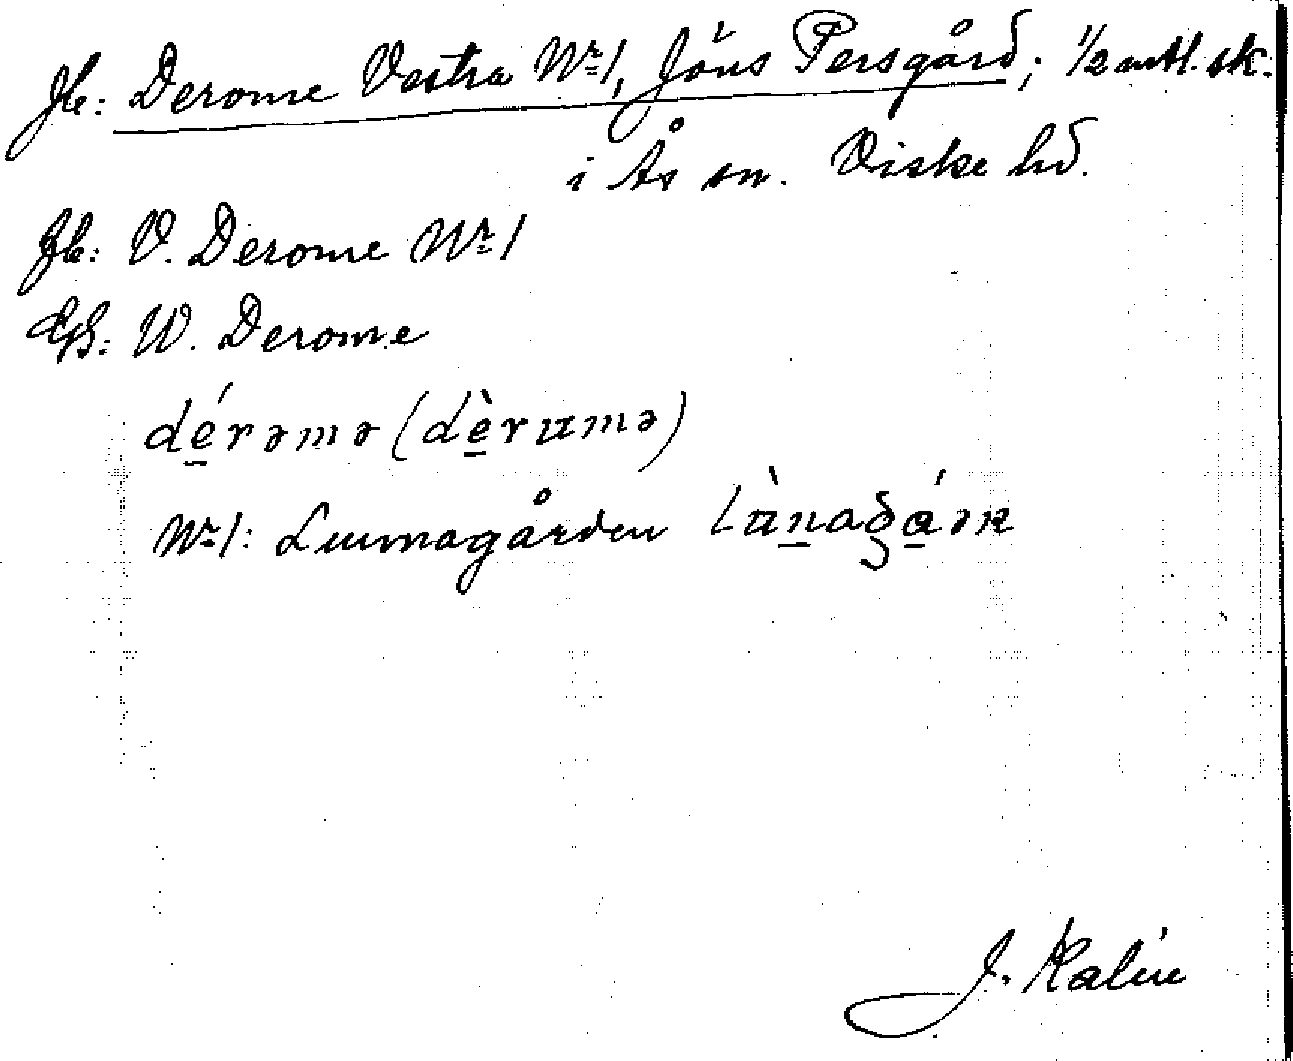 Jb: Derome Vestra Nr 1, Jöns Persgård; 1/2 mtl. sk.
i Ås sn. Viske hd.
Gk: V. Derome Nr 1
GS: W. Derome
dérəmə (dèrumə)
Nr 1: Lunnagården
J. Kalén